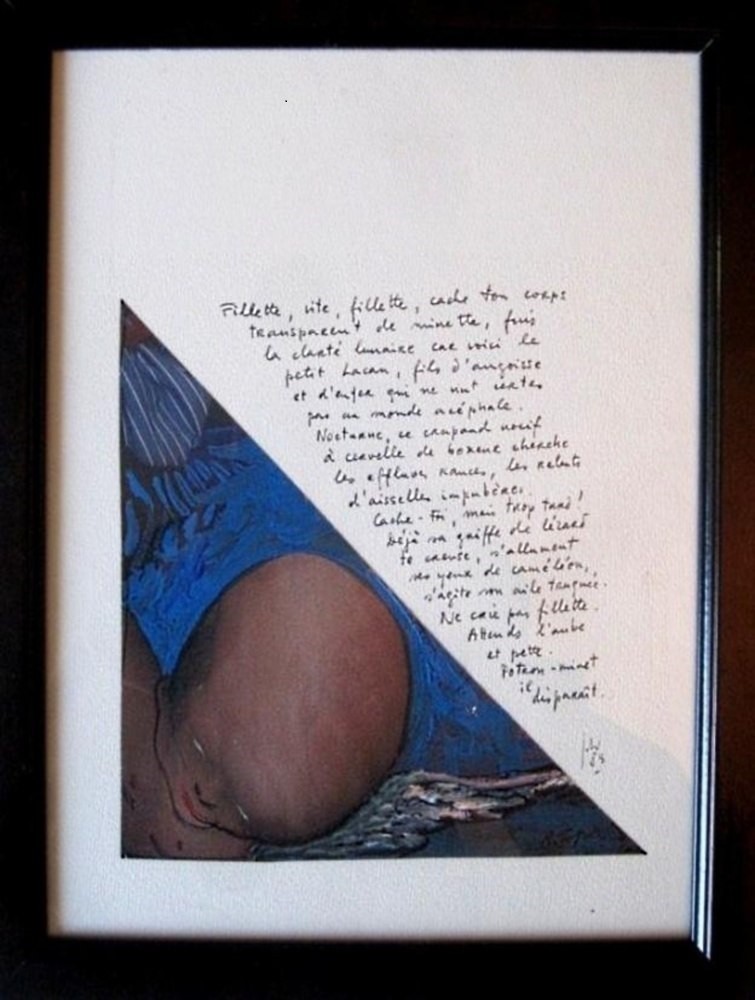 Fillette, vite, fillette, cache ton corps
transparent de minette, fuis
la clarté lunaire car voici le
petit Lacan, fils d'angoisse
et d'enfer qui ne nuit certes
pas au monde acéphale.
Nocturne, ce crapaud nocif
à cervelle de boxeur cherche
les effluves rances, les relents
d'aisselles impubères.
Cache-toi, mais trop tard,
Déjà sa griffe de lézard
te creuse, s'allument
ses yeux de caméléon,
s'agite son aile tanguée.
Ne crie pas fillette.
Attends l'aube
et pette.
Potron-minet
il disparaît.